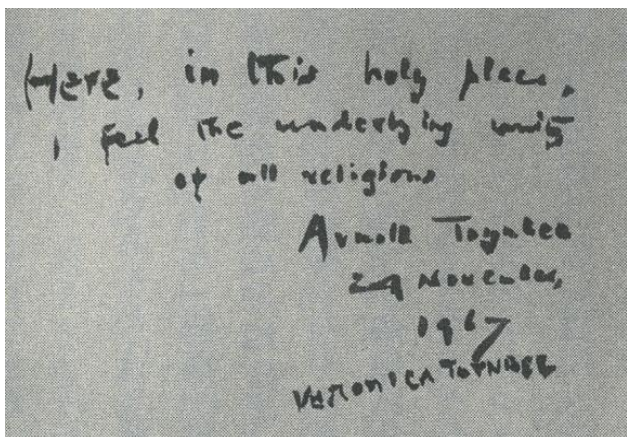 Here, in this holy place,
I feel the underlying unity
of all religions
Arnold Toynbee
29 November,
1967
VERONICA TOYNBEE